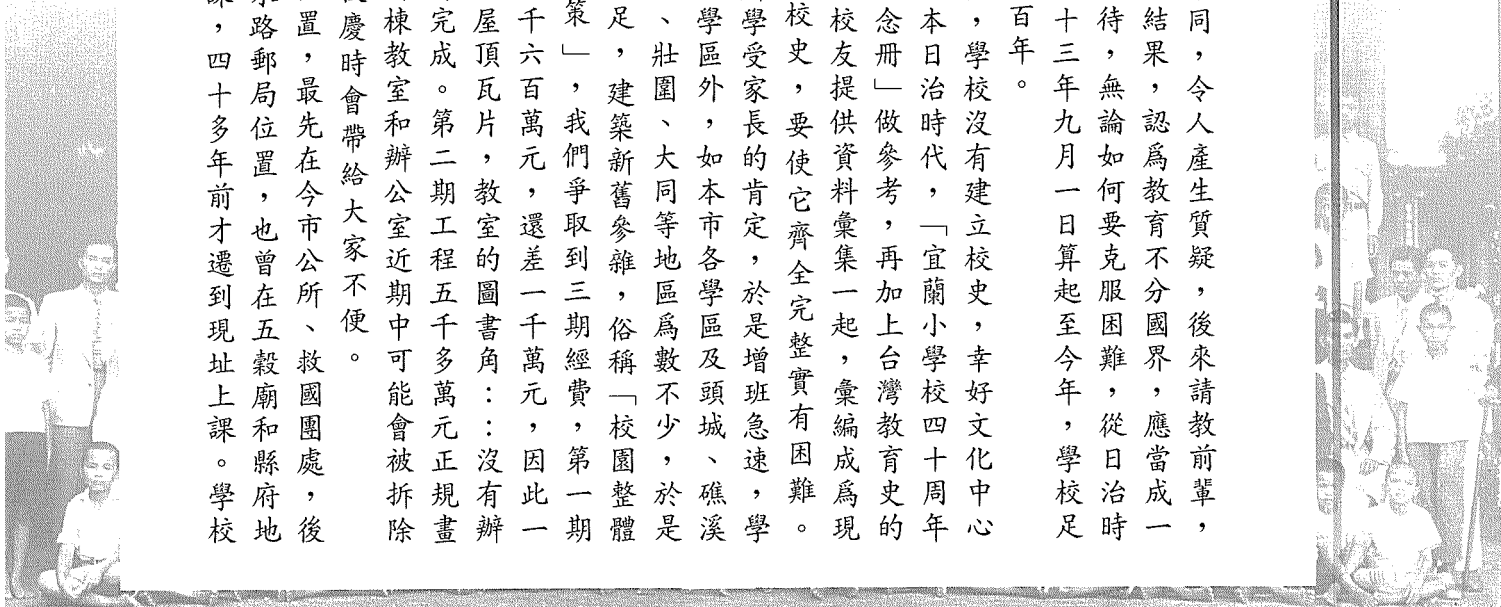 同，令人產生質疑，後來請教前輩，
結果，認爲教育不分國界，應當成一
待，無論如何要克服困難，從日治時
十三年九月一日算起至今年，學校足
百年。
，學校沒有建立校史，幸好文化中心
本日治時代，「宜蘭小學校四十周年
念冊」做參考，再加上台灣教育史的
校友提供資料彙集一起，彙編成爲現
校史，要使它齊全完整實有困難。
學受家長的肯定，於是增班急速，學
學區外，如本市各學區及頭城、礁溪
、壯圍、大同等地區爲數不少，於是
足，建築新舊參雜，俗稱「校園整體
策」，我們爭取到三期經費，第一期
千六百萬元，還差一千萬元，因此一
屋頂瓦片，教室的圖書角：：沒有辦
完成。第二期工程五千多萬元正規畫
棟教室和辦公室近期中可能會被拆除
慶時會帶給大家不便。
置，最先在今市公所、救國團處，後
路郵局位置，也曾在五穀廟和縣府地
，四十多年前才遷到現址上課。學校